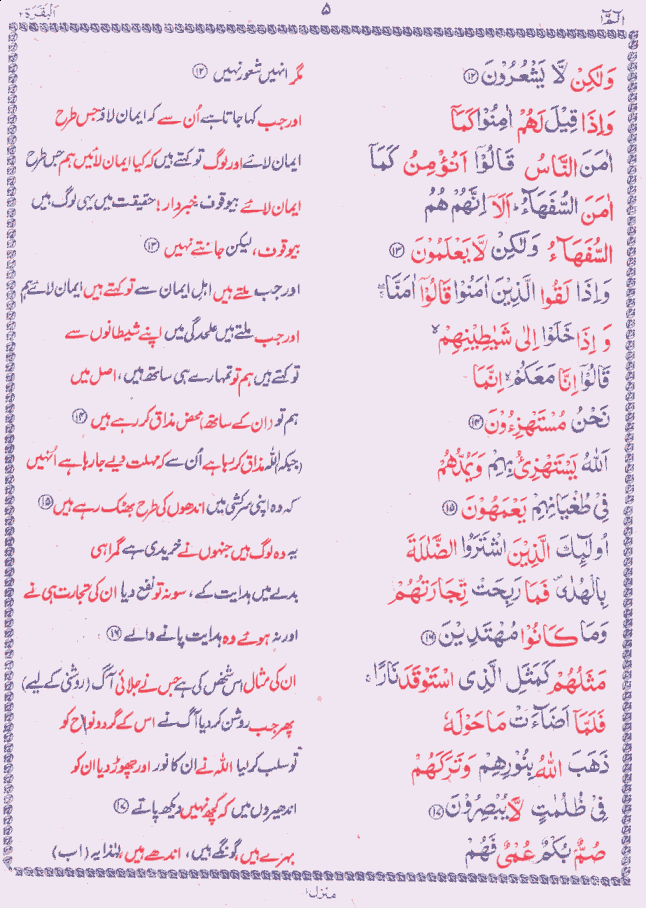 الٓمّٓ ۱ ۵ اَلْبَقَرَة ۲
وَلٰكِنْ لَّا يَشْعُرُوْنَ ⑫ مگر انہیں شعور نہیں ⑫
وَاِذَا قِيْلَ لَهُمْ اٰمِنُوْا كَمَآ اور جب کہا جاتا ہے اُن سے کہ ایمان لاؤ جس طرح
اٰمَنَ النَّاسُ قَالُوْٓا اَنُؤْمِنُ كَمَآ ایمان لائے اور لوگ تو کہتے ہیں کہ کیا ایمان لائیں ہم جس طرح
اٰمَنَ السُّفَهَآءُ ؕ اَلَآ اِنَّهُمْ هُمُ ایمان لائے بیوقوف خبردار! حقیقت میں یہی لوگ ہیں
السُّفَهَآءُ وَلٰكِنْ لَّا يَعْلَمُوْنَ ⑬ بیوقوف، لیکن جانتے نہیں ⑬
وَاِذَا لَقُوا الَّذِيْنَ اٰمَنُوْا قَالُوْٓا اٰمَنَّا ۚ اور جب ملتے ہیں اہلِ ایمان سے تو کہتے ہیں ایمان لائے ہم
وَ اِذَا خَلَوْا اِلٰى شَيٰطِيْنِهِمْ ۙ اور جب ملتے ہیں علحدگی میں اپنے شیطانوں سے
قَالُوْٓا اِنَّا مَعَكُمْ ۙ اِنَّمَا تو کہتے ہیں ہم تو تمہارے ہی ساتھ ہیں، اصل میں
نَحْنُ مُسْتَهْزِءُوْنَ ⑭ ہم تو (ان کے ساتھ) محض مذاق کر رہے ہیں ⑭
اَللّٰهُ يَسْتَهْزِئُ بِهِمْ وَيَمُدُّهُمْ (جبکہ) اللہ مذاق کر رہا ہے اُن سے کہ مہلت دیے جا رہا ہے اُنہیں
فِيْ طُغْيَانِهِمْ يَعْمَهُوْنَ ⑮ کہ وہ اپنی سرکشی میں اندھوں کی طرح بھٹک رہے ہیں ⑮
اُولٰٓئِكَ الَّذِيْنَ اشْتَرَوُا الضَّلٰلَةَ یہ وہ لوگ ہیں جنہوں نے خریدی ہے گمراہی
بِالْهُدٰى ۪ فَمَا رَبِحَتْ تِّجَارَتُهُمْ بدلے میں ہدایت کے، سو نہ تو نفع دیا ان کی تجارت ہی نے
وَمَا كَانُوْا مُهْتَدِيْنَ ⑯ اور نہ ہوئے وہ ہدایت پانے والے ⑯
مَثَلُهُمْ كَمَثَلِ الَّذِى اسْتَوْقَدَ نَارًا ۚ ان کی مثال اس شخص کی ہے جس نے جلائی آگ (روشنی کے لیے)
فَلَمَّآ اَضَآءَتْ مَا حَوْلَهٗ پھر جب روشن کر دیا آگ نے اس کے گردونواح کو
ذَهَبَ اللّٰهُ بِنُوْرِهِمْ وَتَرَكَهُمْ تو سلب کر لیا اللہ نے ان کا نور اور چھوڑ دیا ان کو
فِيْ ظُلُمٰتٍ لَّا يُبْصِرُوْنَ ⑰ اندھیروں میں کہ کچھ نہیں دیکھ پاتے ⑰
صُمٌّۢ بُكْمٌ عُمْيٌ فَهُمْ بہرے ہیں، گونگے ہیں، اندھے ہیں، لہٰذا یہ (اب)
منزل ۱